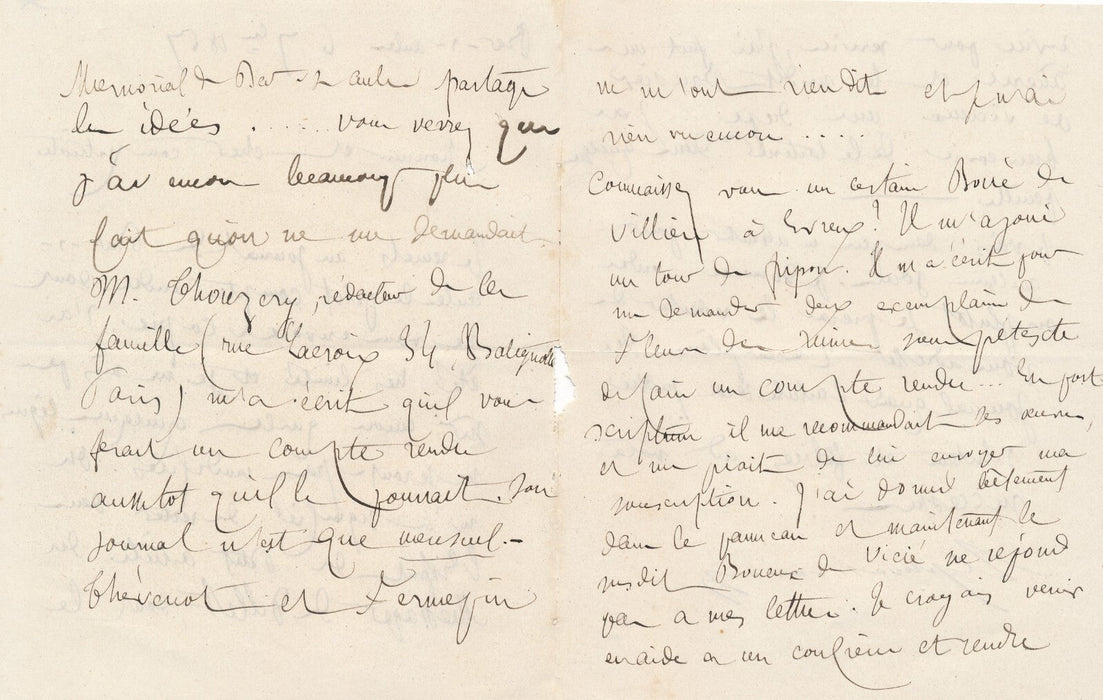 Memorial de Bar-s-aube partage
les idées ...... vous verrez que
j'ai encore beaucoup plus
fait qu'on ne me demandait.
M. Thouzery, rédacteur de la
famille (rue Lacroix 34, Batignolles
Paris) m'a écrit qu'il vous
ferait un compte rendu
aussitot qu'il le pourrait. Son
journal n'est que mensuel. -
Thévenot et
ne m'ont rien dit et je n'ai
rien vu encore .....
Connaissez vous un certain de
Villiers à Evreux? Il m'a joué
un tour de pipon. Il m'a écrit pour
me demander deux exemplaires de
Fleurs des ruines sous prétexte
de faire un compte rendu... En post
scriptum il me recommandait ses œuvres,
et me priait de lui envoyer ma
souscription. J'ai donné bêtement
dans le panneau et maintenant le
susdit de Vicié ne répond
pas à mes lettres. Je croyais venir
en aide a un confrère et rendre